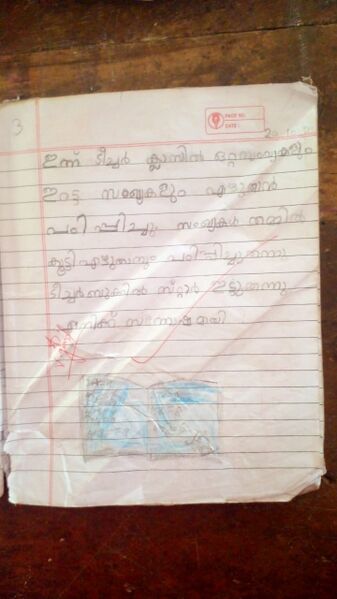 3
PAGE NO.
DATE:
ഇന്ന് ടീച്ചർ ക്ലാസിൽ ഒറ്റസംഖ്യകളും
ഇരട്ട സംഖ്യകളും എഴുതാൻ
പഠിപ്പിച്ചു സംഖ്യകൾ തമ്മിൽ
കൂട്ടിഎഴുതാനും പഠിപ്പിച്ചുതന്നു
ടീച്ചർബുക്കിൽ സ്റ്റാർ ഇട്ടുതന്നു
എനിക്ക് സന്തോഷമായി